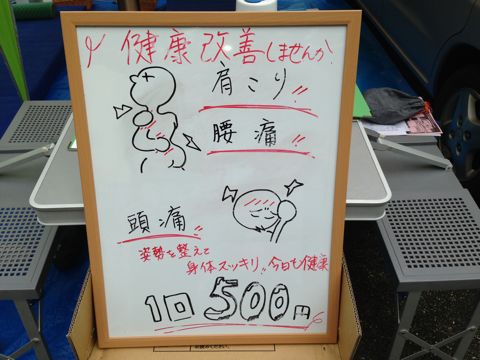 健康改善しませんか
肩こり!!
腰痛!!
頭痛!!
姿勢を整えて
身体スッキリ!!今日も健康
1回500円